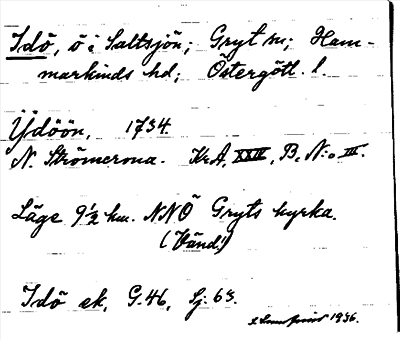 Idö, ö i Saltsjön; Gryt sn; Ham-
markinds hd; Östergötl. l.
Ydöön, 1734.
N. Strömcrona. Kr.A, XXIV, B, N:o III.
Läge 9½ km. NNÖ Gryts kyrka.
(Vänd!)
Idö ek, G. 46, Sj. 63.
1936.